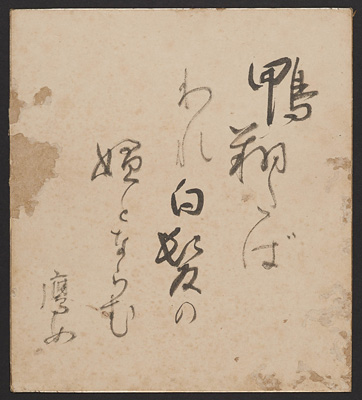 鴨翔たば
われ白髪の
媼とならむ
鷹女